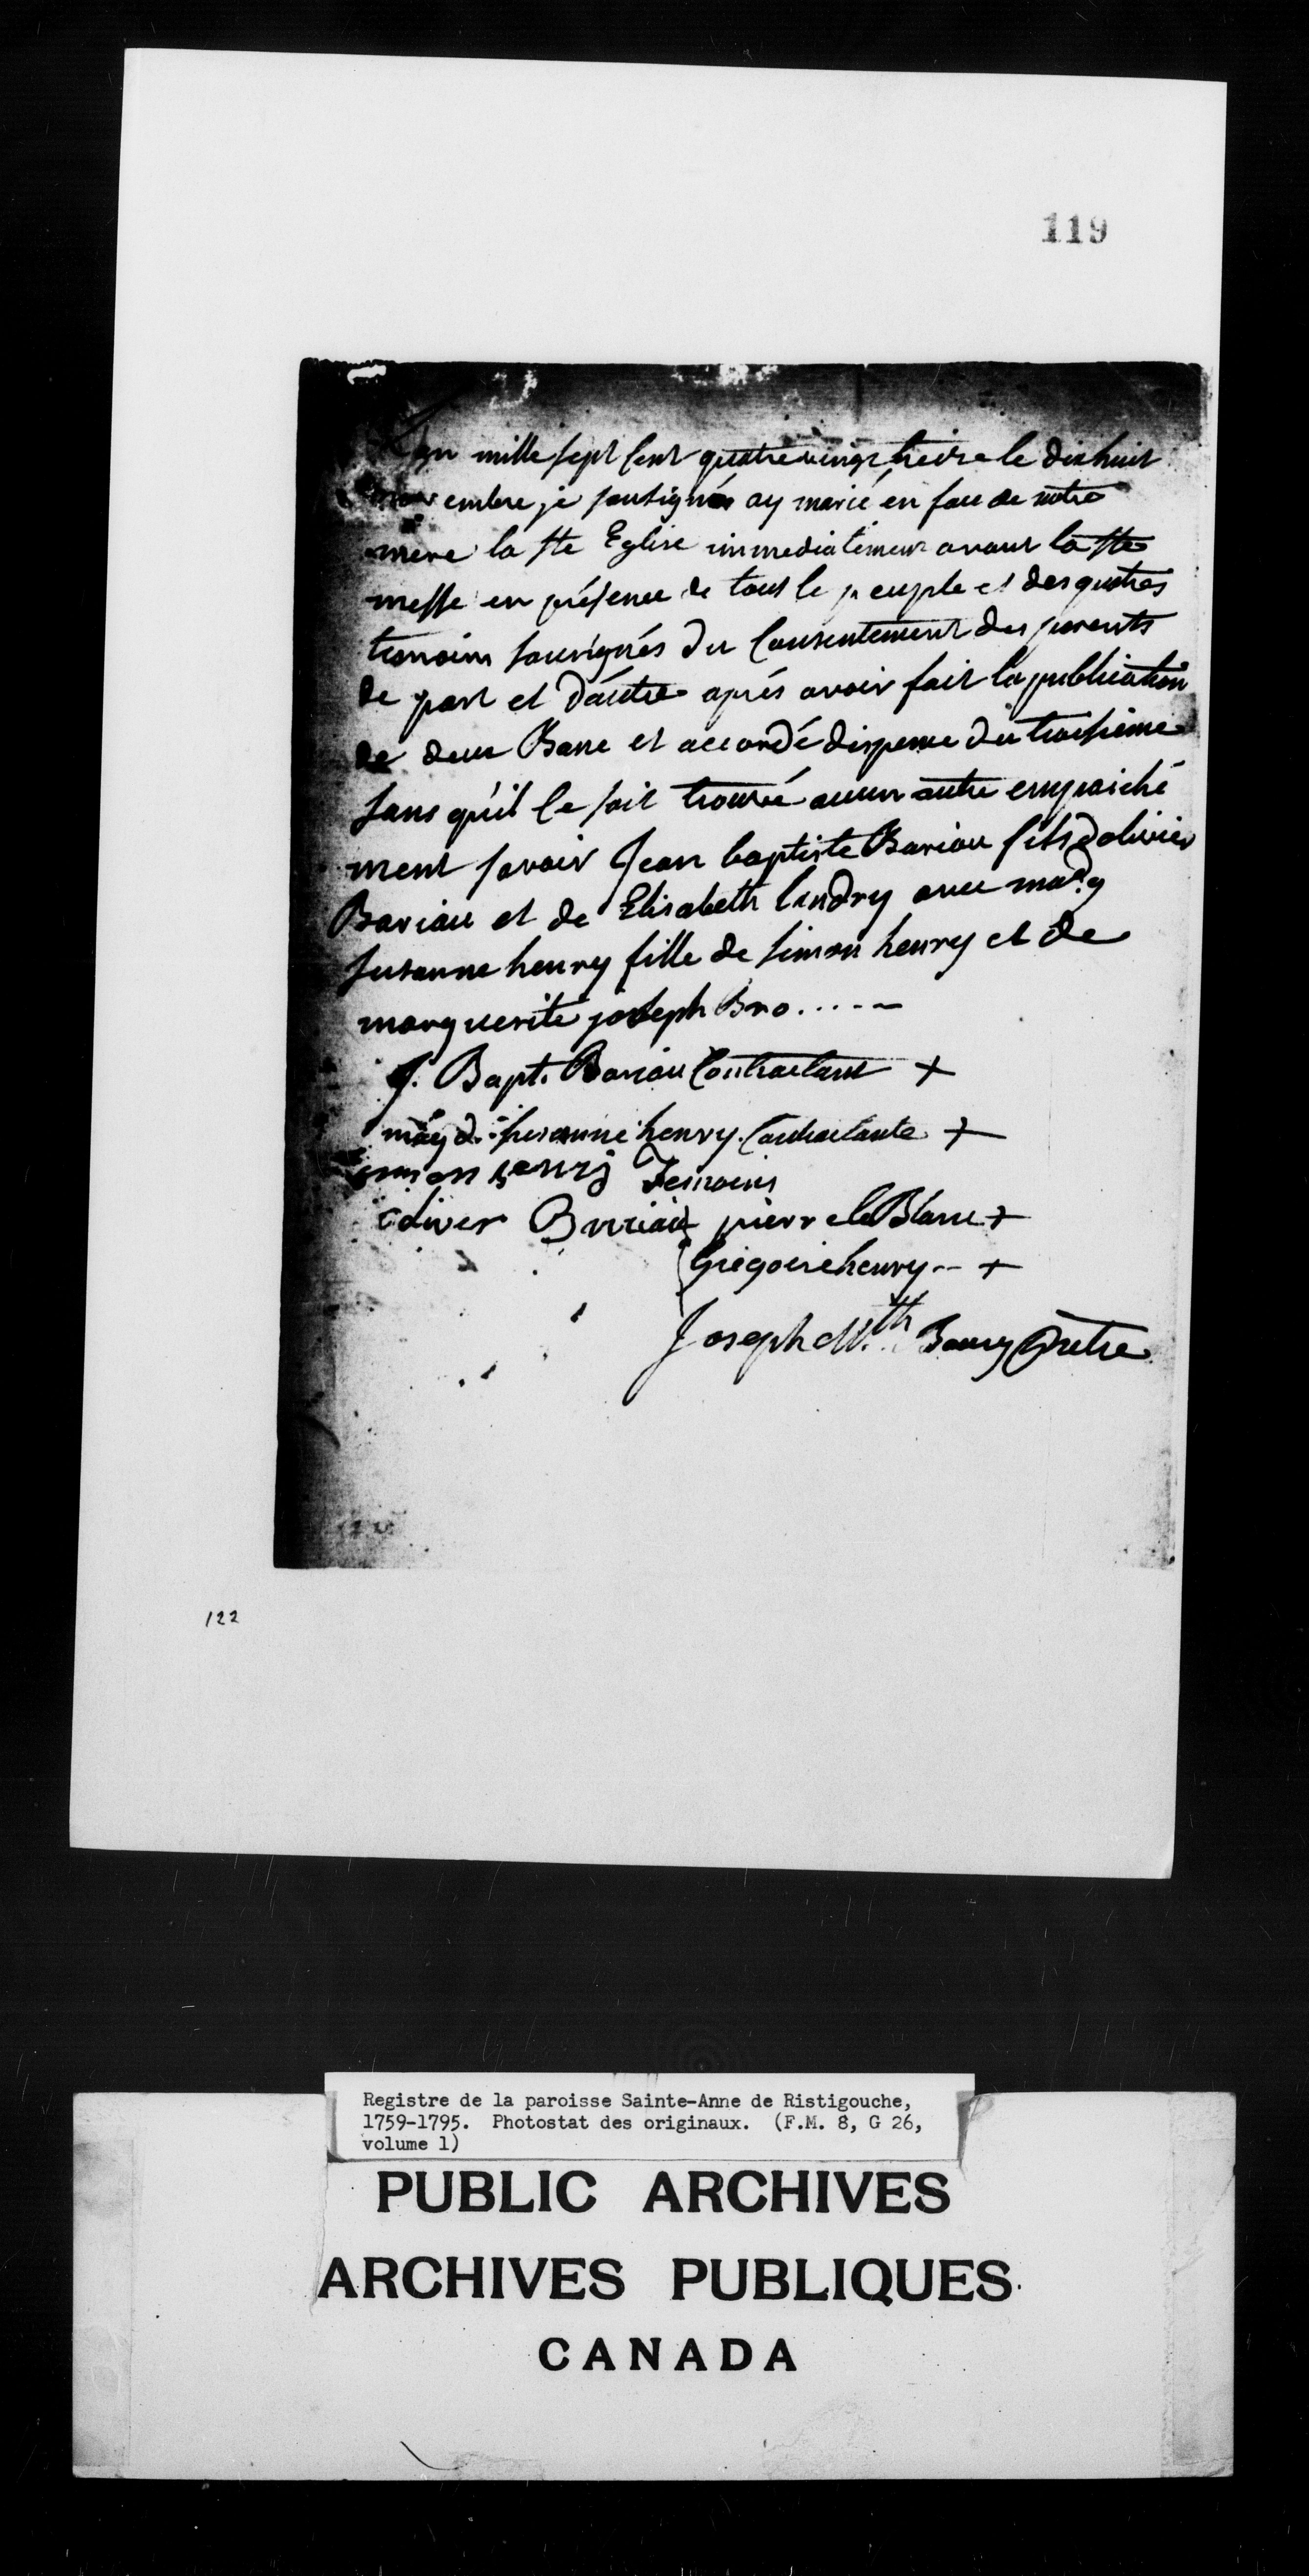 119
L'an mille sept Cent quatre vingt treize le dixhuit
novembre je soussigné ay marié en face de notre
mere la Ste Eglise immediatement avant la Ste
messe en présence de tout le peuple et des quatres
temoins sousignés du Consentement des parents
de part et d'autre aprés avoir fait la publication
de deux Banc et accordé dispence du troisieme
sans qu'il se soit trouvé aucun autre empaiché
ment savoir Jean baptiste Bariau fils d'olivier
Bariau et de Elisabeth landry avec
susanne henry fille de simon henry et de
marguerite joseph Bro.....
J. Bapt. Bariau Contractant +
susanne henry. Contractante +
simon henry Temoins
oliver Buriau pierre leBlanc +
Gregoire henry -- +
Joseph Mth Bourg Prêtre
122
Registre de la paroisse Sainte-Anne de Ristigouche,
1759-1795. Photostat des originaux. (F.M. 8, G 26,
volume 1)
PUBLIC ARCHIVES
ARCHIVES PUBLIQUES
CANADA